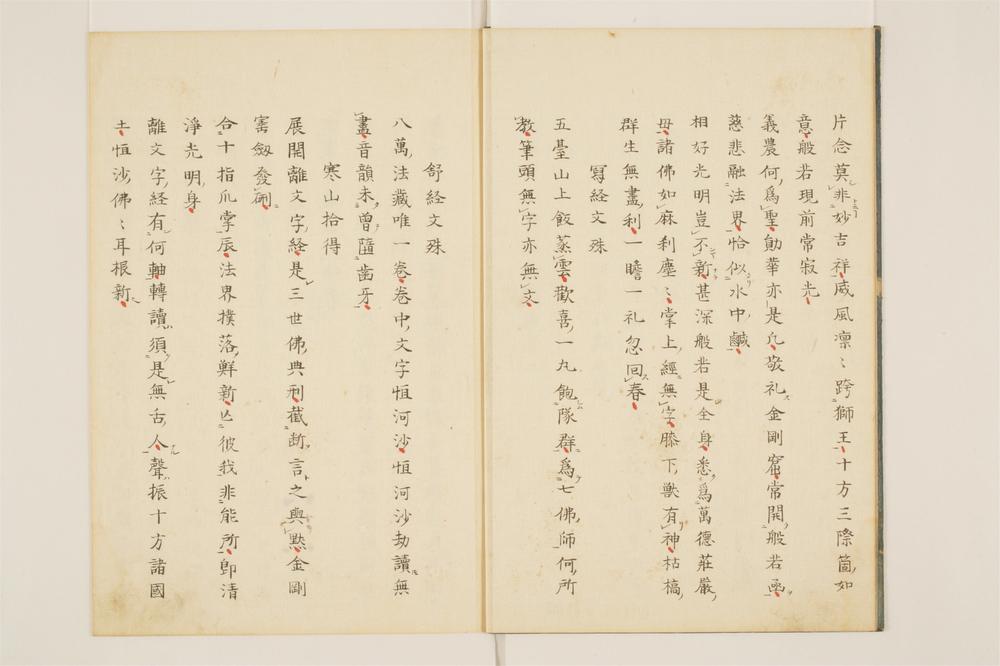 片念莫非妙吉祥威風凛〻跨獅王十方三際箇如
意般若現前常寂光
義農何爲聖勛華亦是凡敬礼金剛窟常開般若函
慈悲融法界恰似水中鹹
相好光明豈不新甚深般若是全身悉爲萬德莊嚴
毋諸佛如麻利塵〻掌上經無字膝下獸有神枯槁
群生無盡利一瞻一礼忽回春
寫経文殊
五臺山上飯蒸雲歡喜一丸飽隊群爲七佛師何所
教筆頭無字亦無文
舒経文殊
八萬法藏唯一卷卷中文字恒河沙恒河沙劫讀無
盡音韻未曽隨齒牙
寒山拾得
展開離文字経是三世佛典刑截断言之與黙金剛
寳劔發硎
合十指爪掌辰法界撲落鮮新亡彼我非能所即清
淨光明身
離文字経有何軸轉讀須是無舌人聲振十方諸國
土恒沙佛〻耳根新